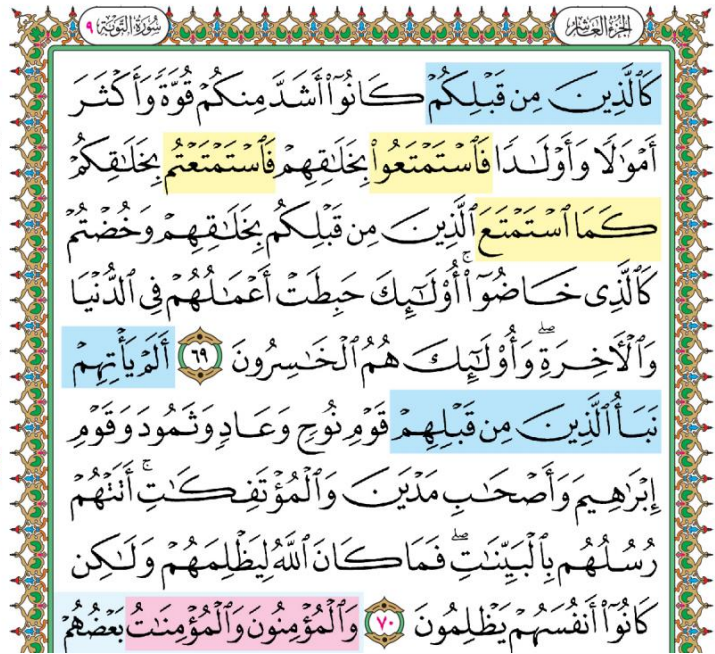 الجزء العاشر سورة التوبة ٩
كَٱلَّذِينَ مِن قَبْلِكُمْ كَانُوٓا۟ أَشَدَّ مِنكُمْ قُوَّةً وَأَكْثَرَ
أَمْوَٰلًا وَأَوْلَٰدًا فَٱسْتَمْتَعُوا۟ بِخَلَٰقِهِمْ فَٱسْتَمْتَعْتُم بِخَلَٰقِكُمْ
كَمَا ٱسْتَمْتَعَ ٱلَّذِينَ مِن قَبْلِكُم بِخَلَٰقِهِمْ وَخُضْتُمْ
كَٱلَّذِى خَاضُوٓا۟ ۚ أُو۟لَٰٓئِكَ حَبِطَتْ أَعْمَٰلُهُمْ فِى ٱلدُّنْيَا
وَٱلْءَاخِرَةِ ۖ وَأُو۟لَٰٓئِكَ هُمُ ٱلْخَٰسِرُونَ ٦٩ أَلَمْ يَأْتِهِمْ
نَبَأُ ٱلَّذِينَ مِن قَبْلِهِمْ قَوْمِ نُوحٍ وَعَادٍ وَثَمُودَ وَقَوْمِ
إِبْرَٰهِيمَ وَأَصْحَٰبِ مَدْيَنَ وَٱلْمُؤْتَفِكَٰتِ ۚ أَتَتْهُمْ
رُسُلُهُم بِٱلْبَيِّنَٰتِ ۖ فَمَا كَانَ ٱللَّهُ لِيَظْلِمَهُمْ وَلَٰكِن
كَانُوٓا۟ أَنفُسَهُمْ يَظْلِمُونَ ٧٠ وَٱلْمُؤْمِنُونَ وَٱلْمُؤْمِنَٰتُ بَعْضُهُمْ